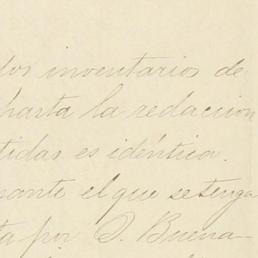 los inventarios de
hasta la redaccion
tidas es idéntica.
ante el que se tenga
ta por D. Buena-